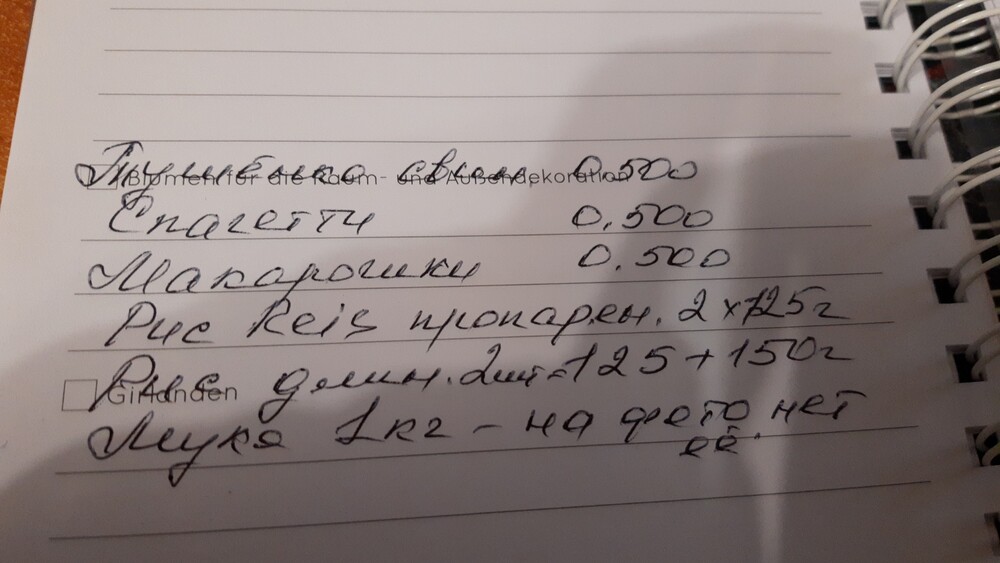 Тушёнка свин. 0,500
Blumen für die Raum- und Außendekoration
Спагетти 0,500
Макарошки 0.500
Рис Reis пропарен. 2x125г
Рис длин. 2шт=125+150г
Girlanden
Мука 1кг - на фото нет
её.